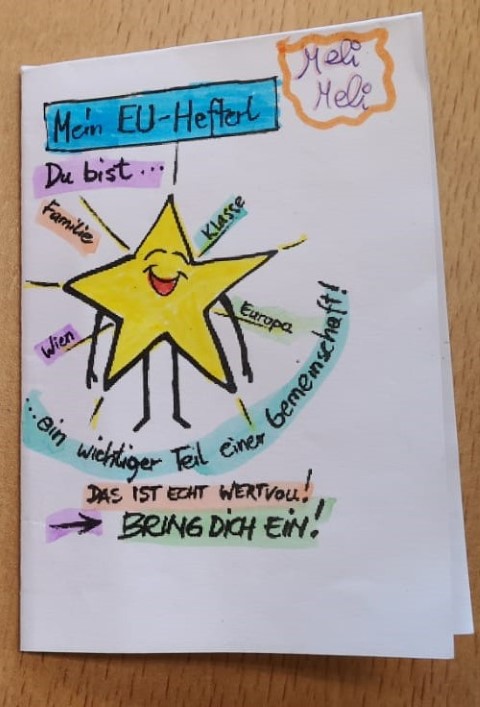 Meli
Meli
Mein EU-Hefterl
Du bist...
Familie
Klasse
Wien
Europa
...ein wichtiger Teil einer Gemeinschaft!
DAS IST ECHT WERTVOLL!
→ BRING DICH EIN!